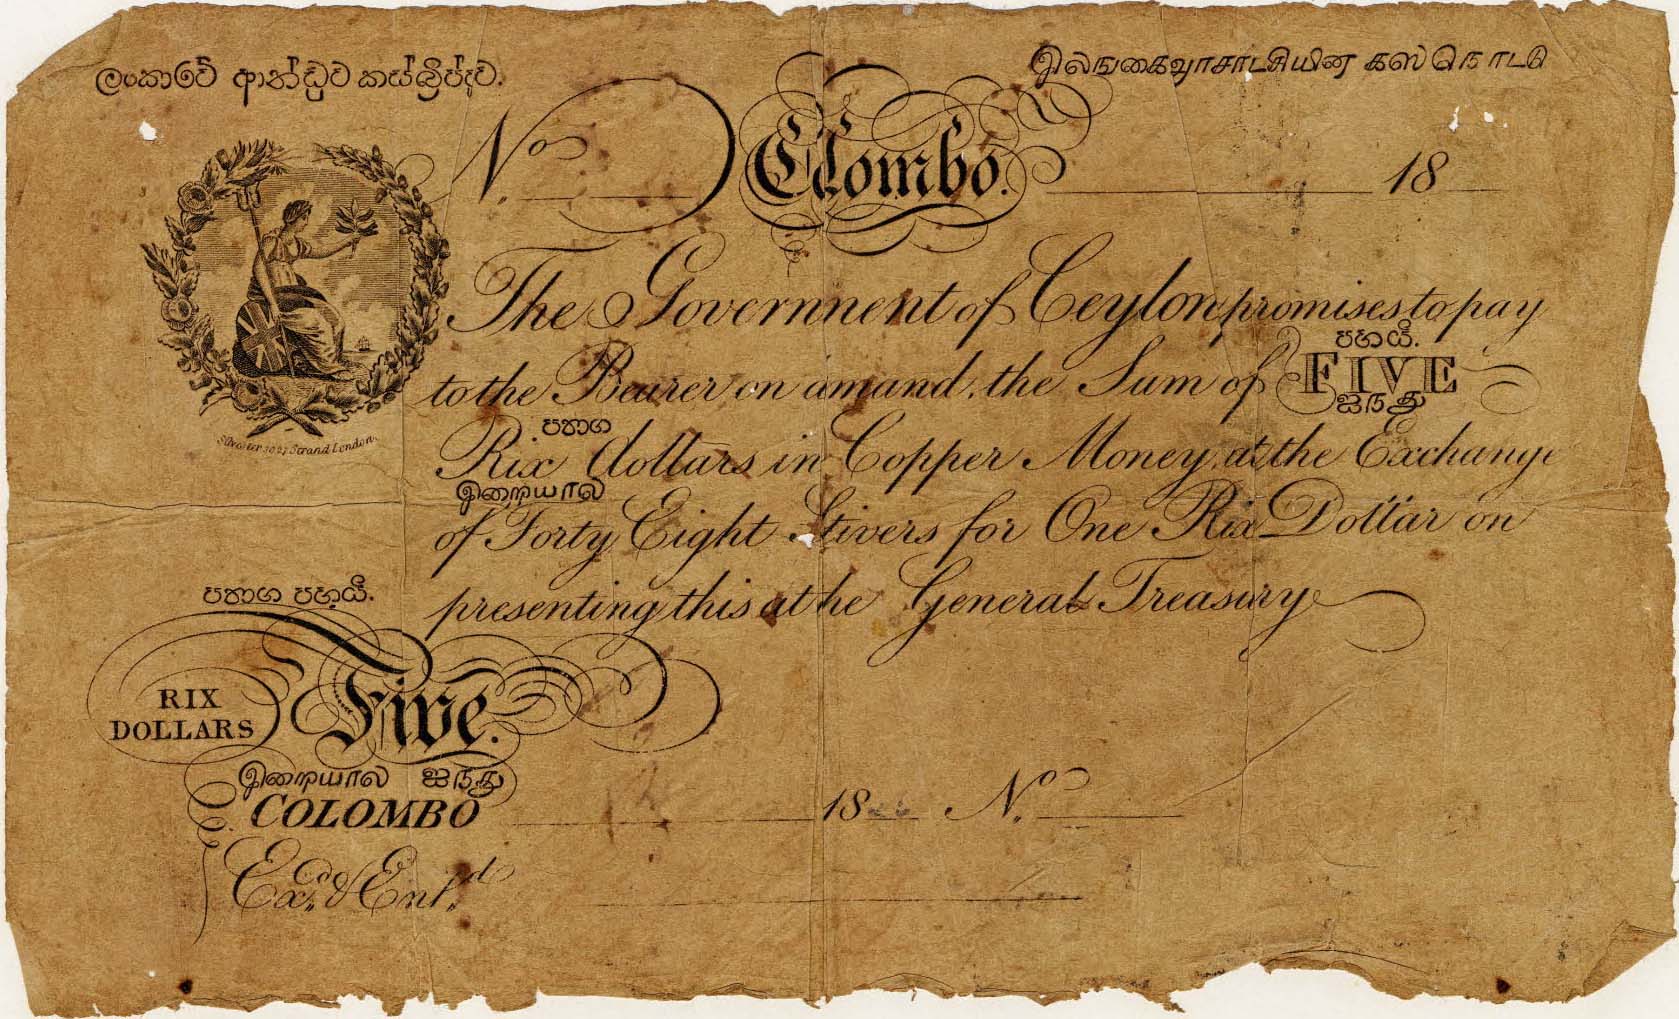 ලංකාවේ ආන්ඩුව කස්ක්‍රීප්පුව.
இலங்கைஆசாட்சியின கஸ நொட்டு
No. Colombo. 18
The Government of Ceylon promises to pay
පහයි.
to the Bearer on amand, the Sum of FIVE
ஐந்து
පතාග
Rix dollars in Copper Money, at the Exchange
இறையால
of Forty Eight Stivers for One Rix Dollar on
presenting this at he General Treasury
Silvester 2027 Strand London.
පතාග පහයි.
RIX DOLLARS Five.
இறையால ஐந்து
COLOMBO 18 No.
Exd. & Entd.